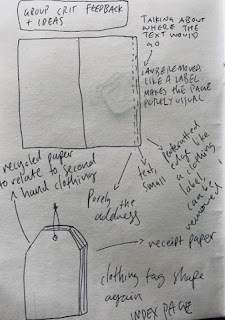 GROUP CRIT FEEDBACK
+ IDEAS
TALKING ABOUT
WHERE THE
TEXT WOULD
GO
CAN BE REMOVED
LIKE A LABEL
MAKES THE PAGE
PURELY VISUAL
recycled paper
to relate to second
hand clothing
Purely the
address
text,
small
perforated
edge like
a clothing
label
can be
removed
receipt paper
clothing tag shape
again
INDEX PAGE